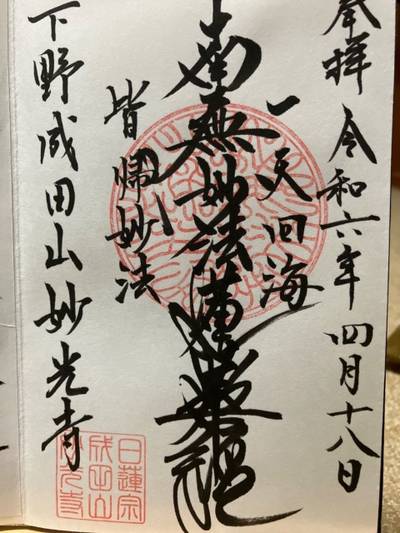 奉拝 令和六年四月十八日
一天四海
南無妙法蓮華経
皆帰妙法
下野成田山妙光寺
日蓮宗
成田山
妙光寺